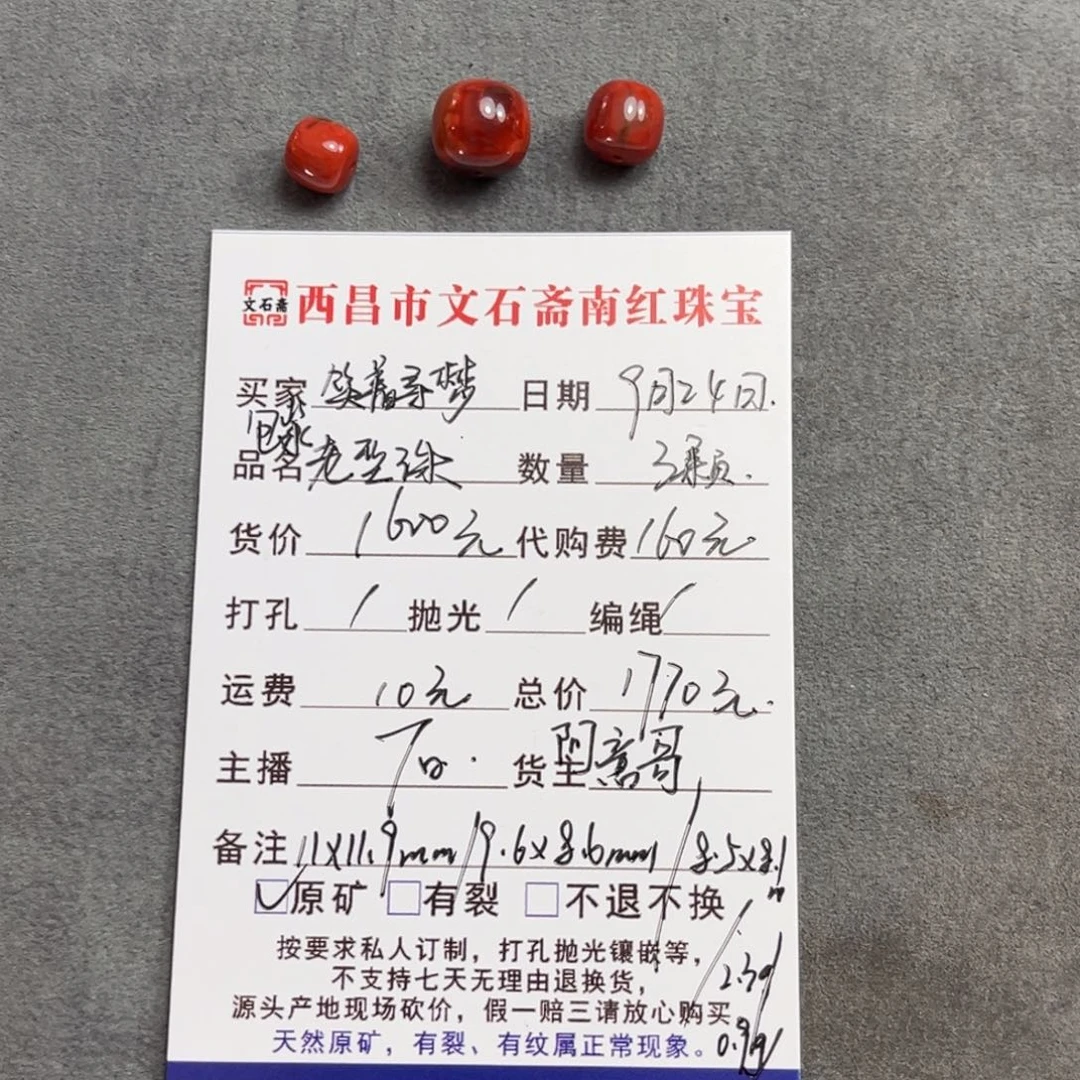 文石斋 西昌市文石斋南红珠宝
买家 笑着寻梦 日期 9月24日.
包浆
品名 老型珠 数量 3颗.
货价 1600元 代购费 160元
打孔 / 抛光 / 编绳 /
运费 10元 总价 1770元.
主播 货主 阿高哥
备注 11x11.9mm/9.6x8.6mm/8.5x8.1m
原矿 有裂 不退不换
按要求私人订制，打孔抛光镶嵌等，
不支持七天无理由退换货，
源头产地现场砍价，假一赔三请放心购买。
天然原矿，有裂、有纹属正常现象。
0.9g